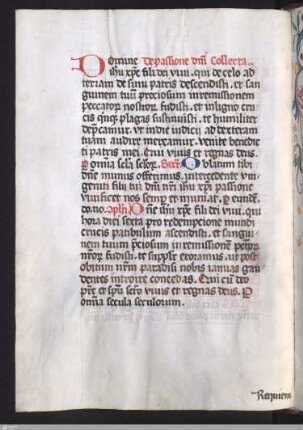 Domine De passione dni Collecta
ihu xpe fili dei viui. qui de celo ad
terram de sinu patris descendisti. et san
guinem tuu preciosum in remissionem
peccatorum nostrorum fudisti. et in ligno cru
cis quinque plagas sustinuisti. te humiliter
deprecamur. ut in die iudicij ad dexteram
tuam audire mereamur. venite benedic
ti patris mei. Qui viuis et regnas deus.
P omnia secla seclor. Secr Oblatum tibi
dne munus offerimus. intercedente vni
geniti filij tui dni nri ihu xpi passione
viuificet nos semp et muniat. P eundem
Dne ihu xpe fili dei viui. qui
hora diei sexta pro redempcione mundi
crucis patibulum ascendisti. et sangui
nem tuum preciosum in remissionem pctorum
nrorum fudisti. te suppliciter exoramus. ut post
obitum nrm paradisi nobis ianuas gau
dentes introire concedas. Qui cu deo
pre et spu sco viuis et regnas deus. P
omnia secula seculorum.
Requiem